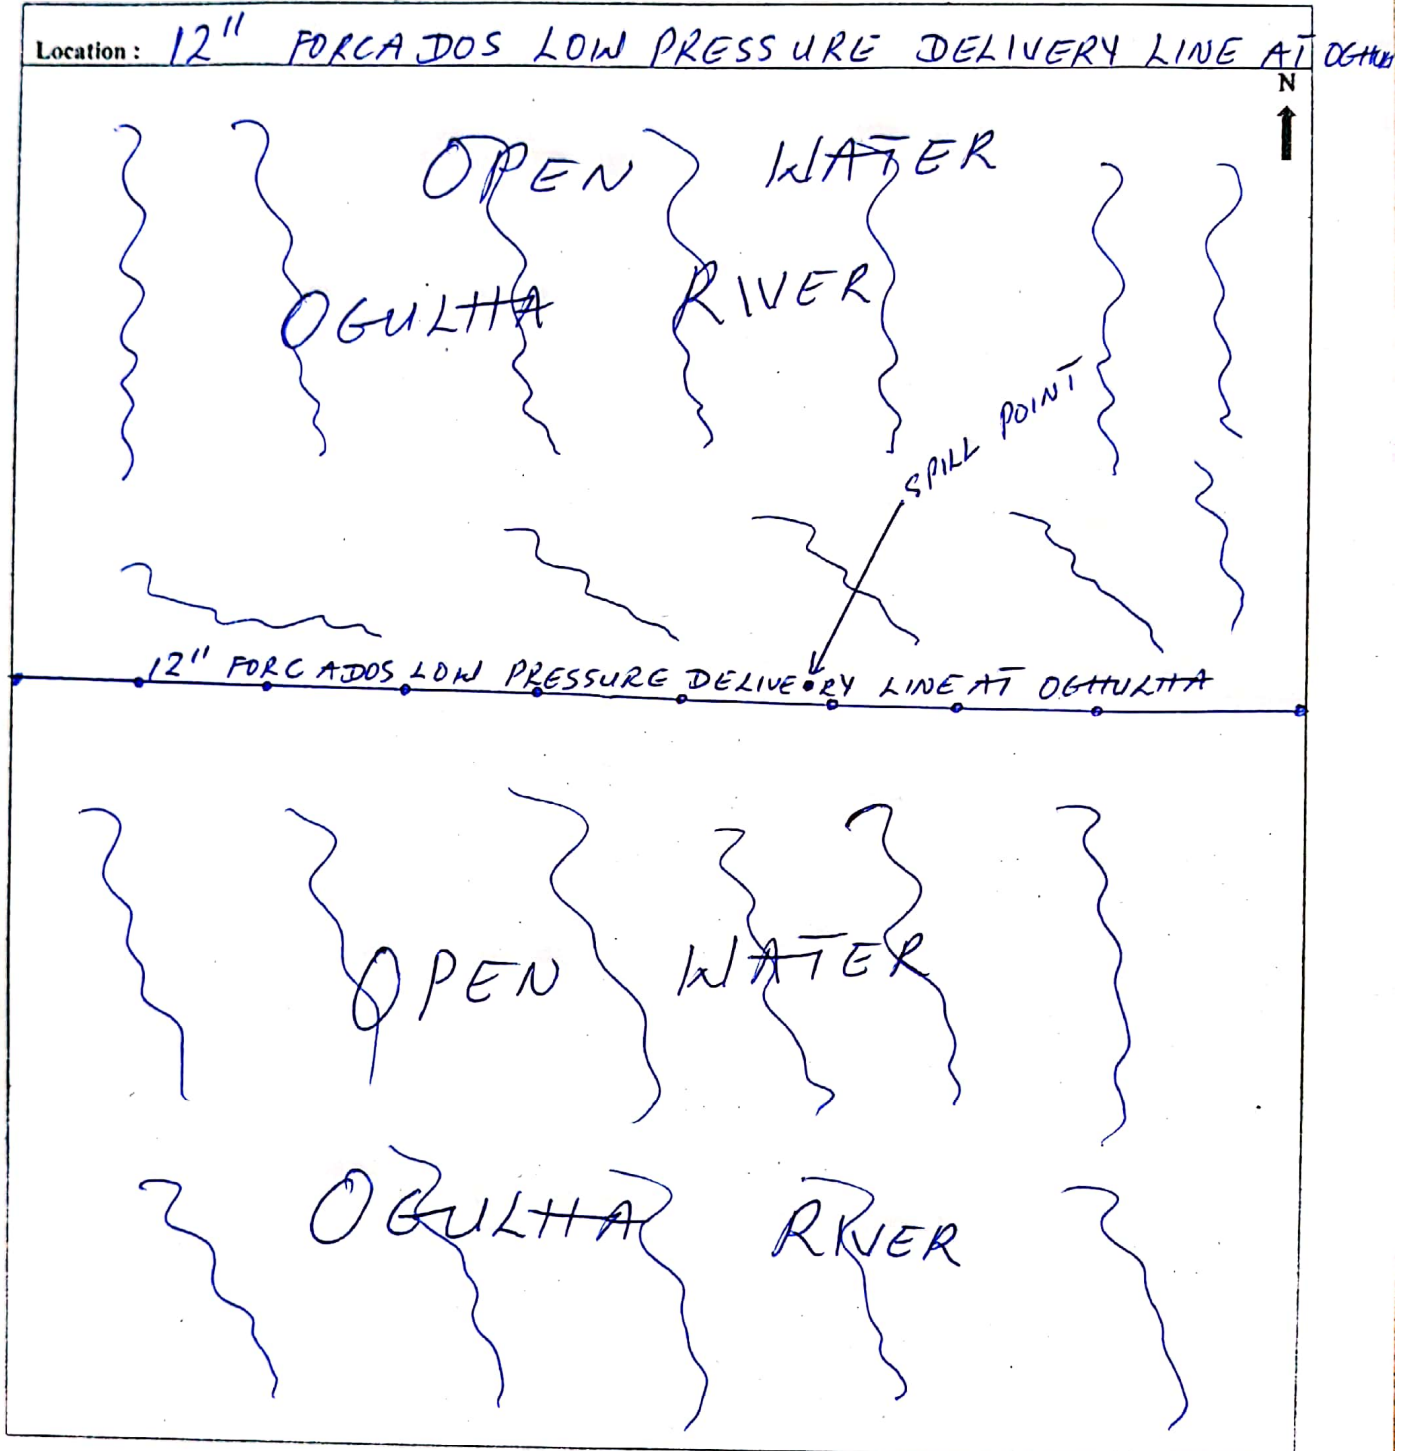 Location : 12" FORCADOS LOW PRESSURE DELIVERY LINE AT
N
OPEN WATER
OGULHA RIVER
SPILL POINT
12" FORCADOS LOW PRESSURE DELIVERY LINE AT OGHULHA
OPEN WATER
OGULHA RIVER